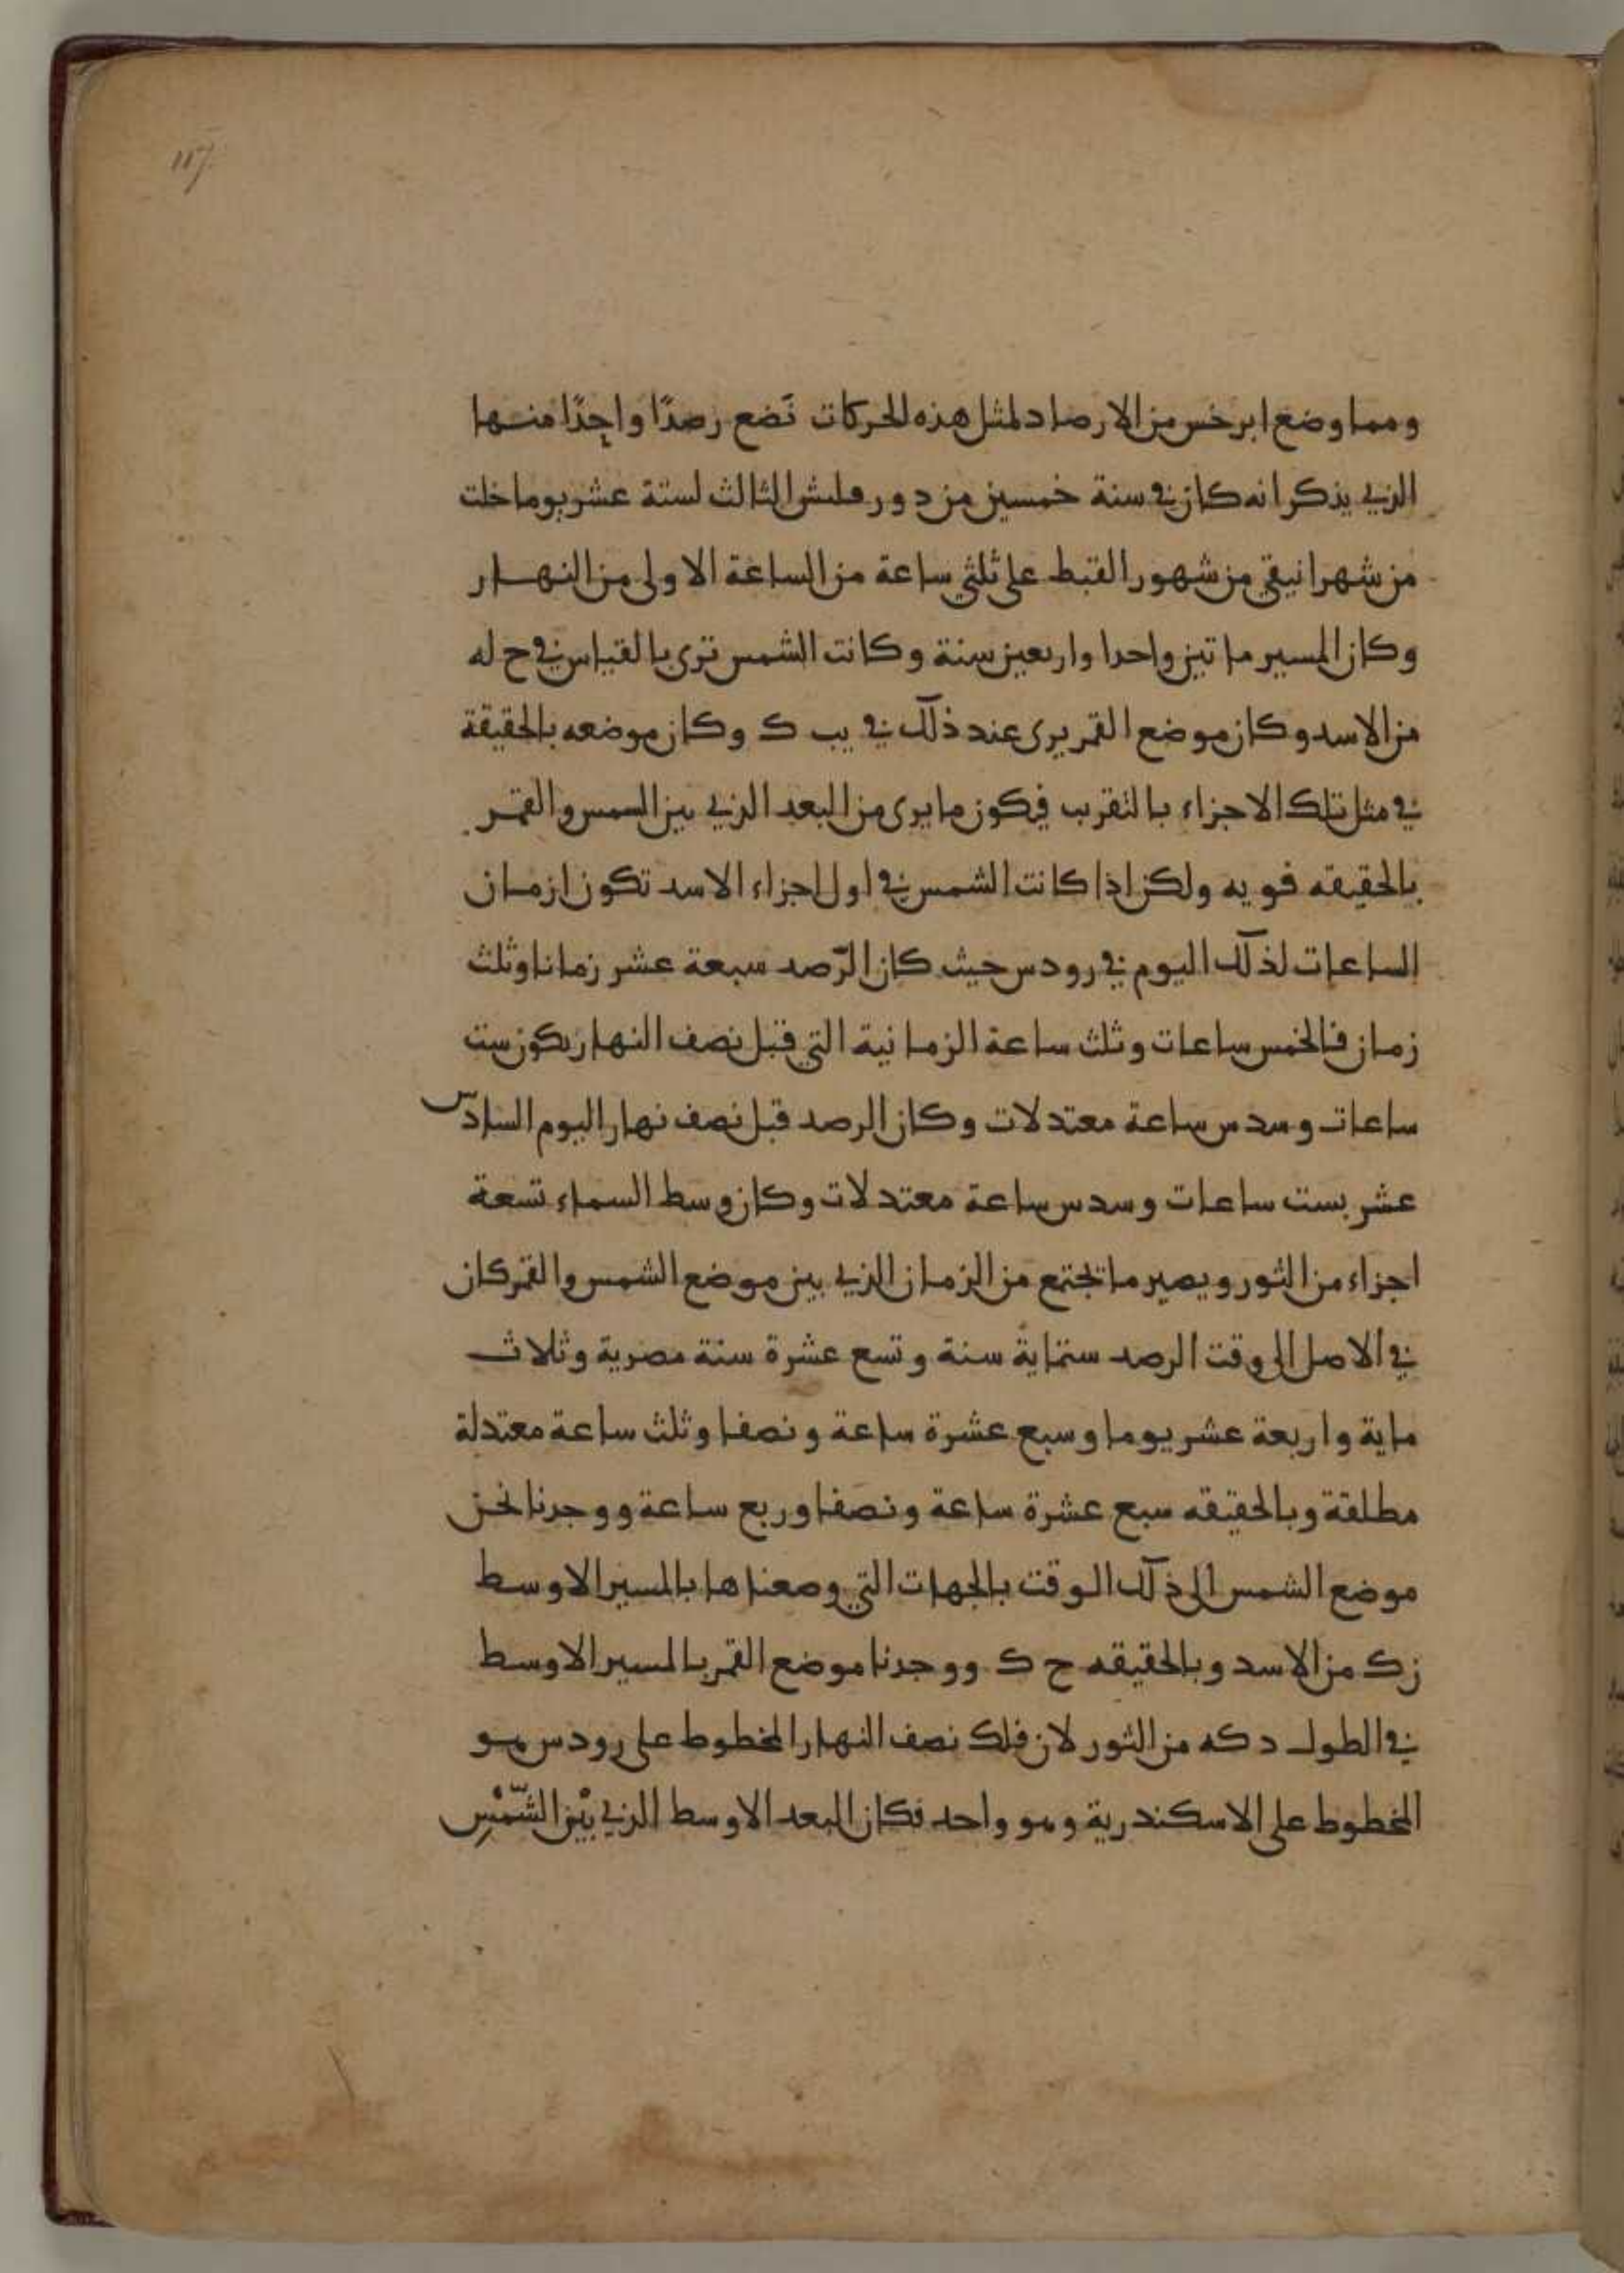 117
ومما وضع ابرخس من الارصاد لمثل هذه الحركات نَضع رصدًا واحِدًا منها
الذي يذكر انه كان في سنة خمسين من دور فلبش الثالث لستة عشر يوما خلت
من شهر انيقي من شهور القبط على ثلثي ساعة من الساعة الاولى من النهار
وكان المسير ماتين واحدا واربعين سنة وكانت الشمس ترى بالقياس في ح له
من الاسد وكان موضع القمر يرى عند ذلك في يب ك وكان موضعه بالحقيقة
في مثل تلك الاجزاء بالتقرب فيكون ما يرى من البعد الذي بين الشمس والقمر
بالحقيقه فو يه ولكن اذا كانت الشمس في اول اجزاء الاسد تكون ازمان
الساعات لذلك اليوم في رودس حيث كان الرّصد سبعة عشر زمانا وثلث
زمان فالخمس ساعات وثلث ساعة الزمانية التي قبل نصف النهار يكون ست
ساعات وسدس ساعة معتدلات وكان الرصد قبل نصف نهار اليوم السادس
عشر بست ساعات وسدس ساعة معتدلات وكان وسط السماء تسعة
اجزاء من الثور ويصير ما تجتمع من الزمان الذي بين موضع الشمس والقمر كان
في الاصل الى وقت الرصد ستماية سنة وتسع عشرة سنة مصرية وثلاث
ماية واربعة عشر يوما وسبع عشرة ساعة ونصفا وثلث ساعة معتدلة
مطلقة وبالحقيقه سبع عشرة ساعة ونصفا وربع ساعة ووجدنا نحن
موضع الشمس الى ذلك الوقت بالجهات التي وصعناها بالمسير الاوسط
زك من الاسد وبالحقيقه ح ك ووجدنا موضع القمر بالمسير الاوسط
في الطول د كه من الثور لان فلك نصف النهار المخطوط على رودس هو
المخطوط على الاسكندرية وهو واحد فكان البعد الاوسط الذي بيْن الشّمْسِ